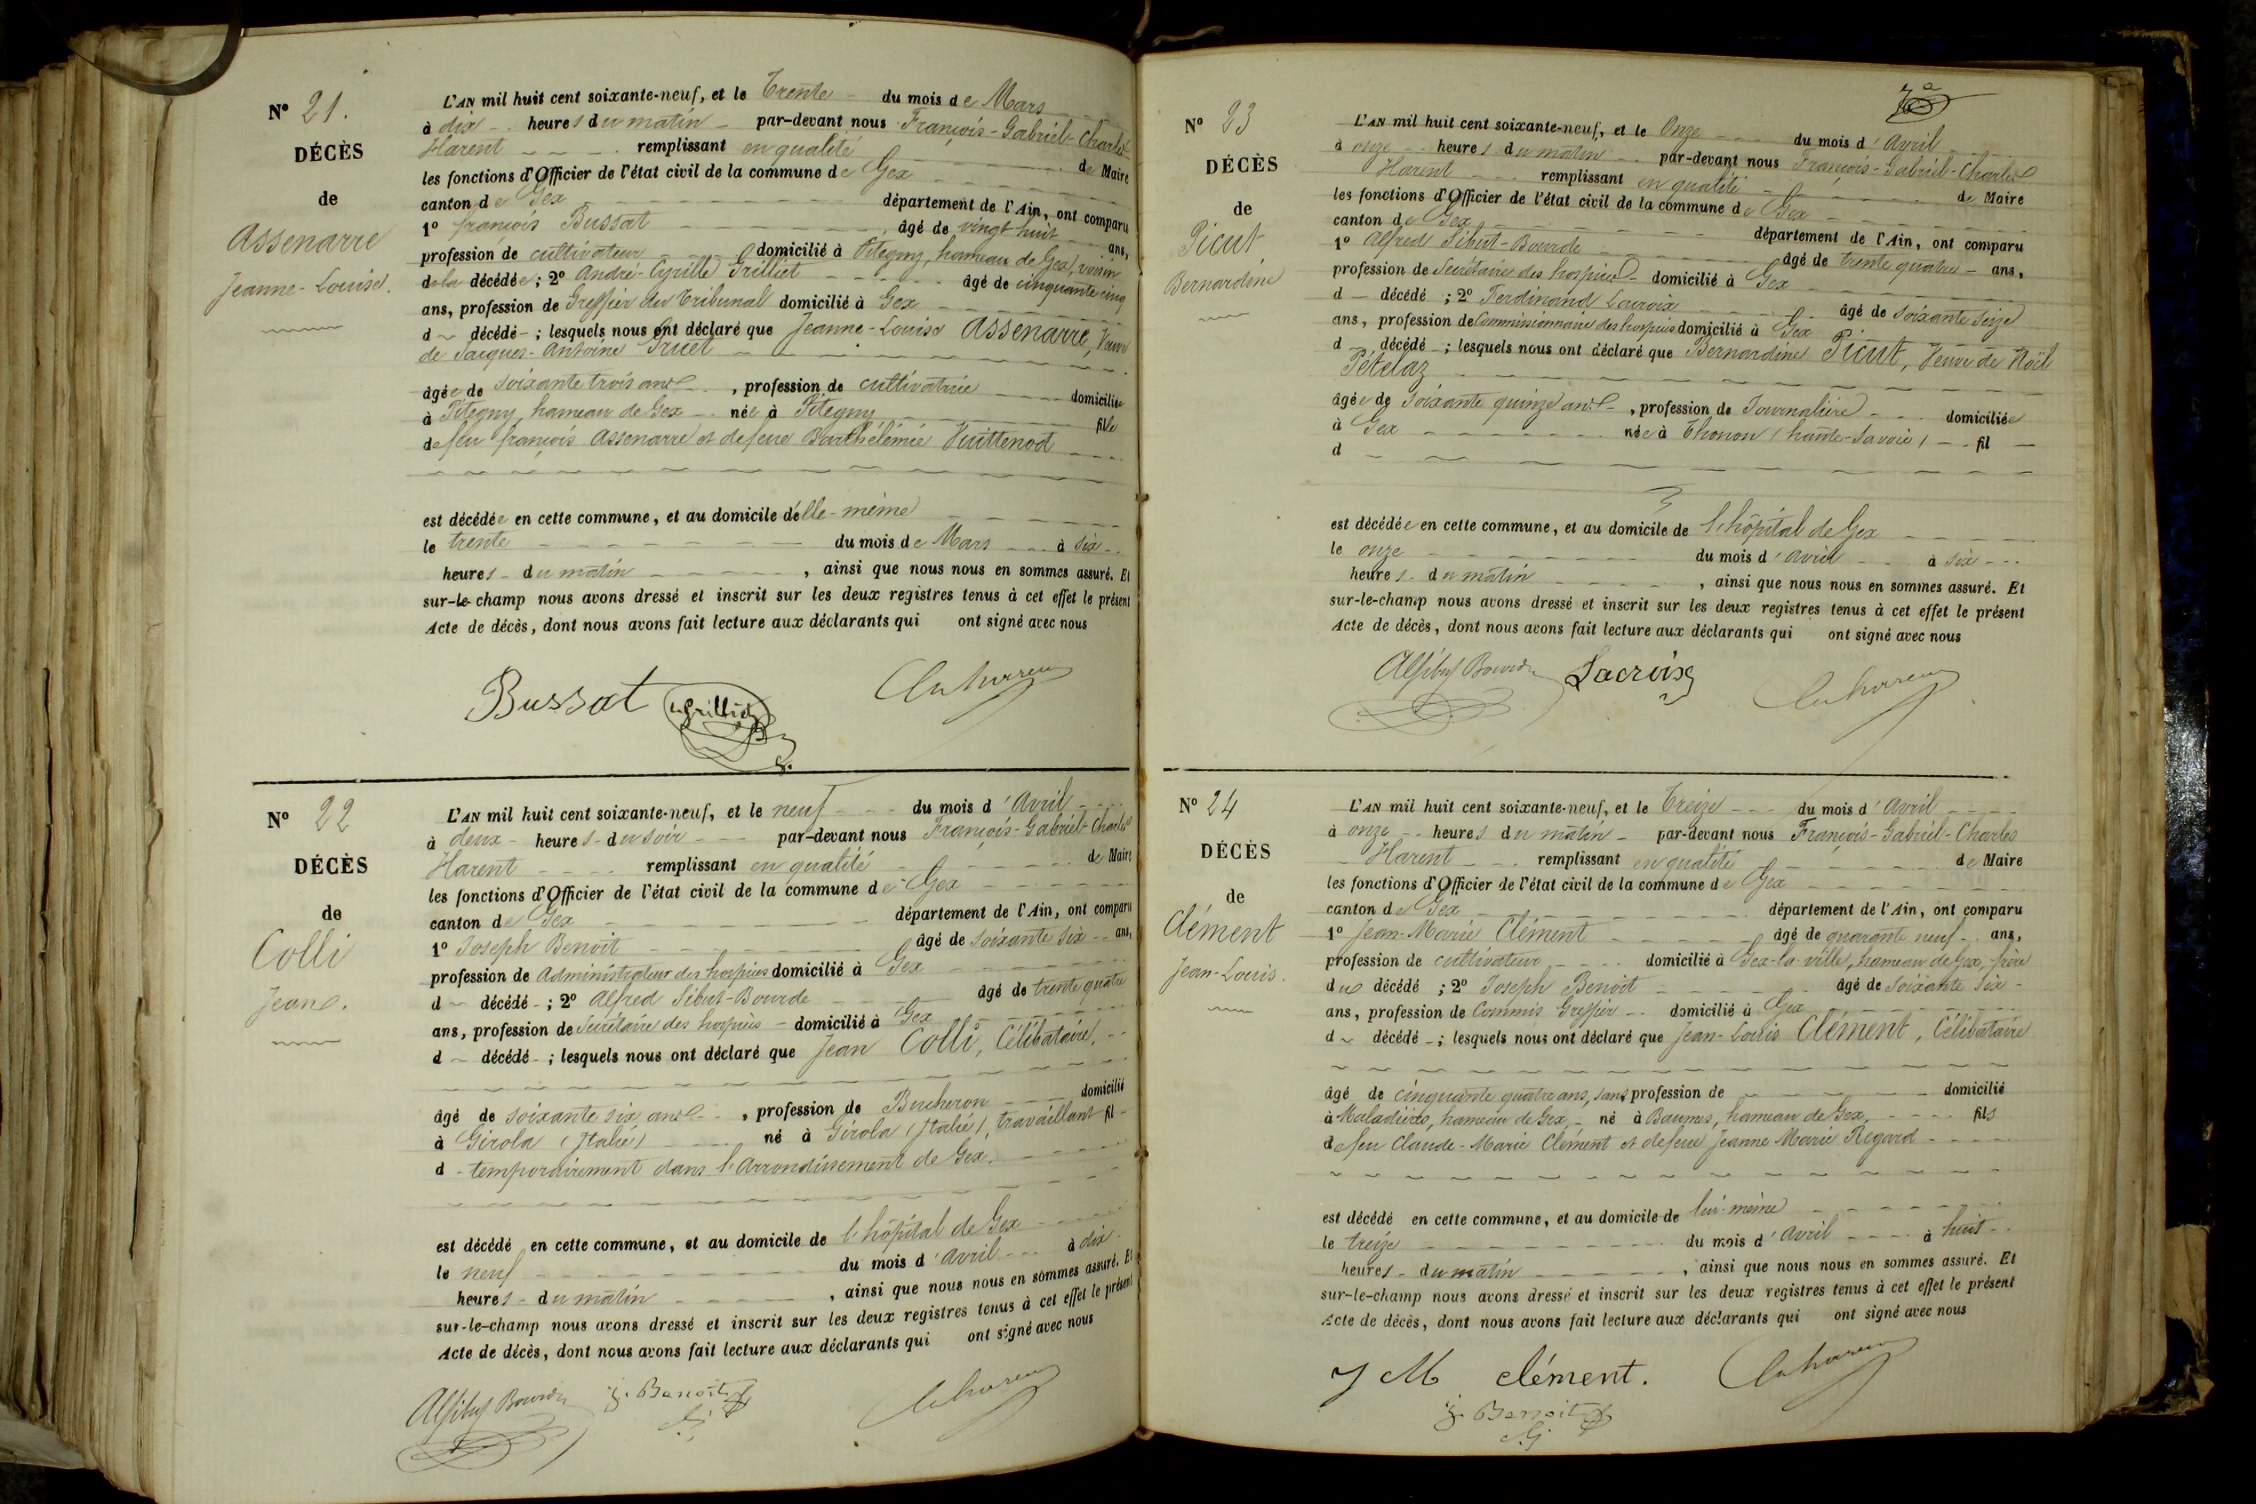 N° 21.
DÉCÈS
de
Assenarre
Jeanne-Louise.
L'AN mil huit cent soixante-neuf, et le Trente du mois de Mars
à dix heures du matin par-devant nous François-Gabriel-Charles
Harent remplissant en qualité de Maire
les fonctions d'Officier de l'état civil de la commune de Gex
canton de Gex département de l'Ain, ont comparu
1° françois Bussat âgé de vingt huit ans,
profession de cultivateur domicilié à Pitegny, hameau de Gex, voisin
de la décédée ; 2° André-Cyrille Grilliet âgé de cinquante cinq
ans, profession de Greffier du Tribunal domicilié à Gex
d décédé ; lesquels nous ont déclaré que Jeanne-Louise Assenarre, Veuve
de Jacques-Antoine Pruet
âgée de soixante trois ans , profession de cultivatrice domiciliée
à Pitegny, hameau de Gex née à Pitegny fille
de feu françois Assenarre et de feue Barthélémie Vuittenod
est décédée en cette commune, et au domicile d'elle-même
le trente du mois de Mars à six
heures du matin , ainsi que nous nous en sommes assuré. Et
sur-le-champ nous avons dressé et inscrit sur les deux registres tenus à cet effet le présent
Acte de décès, dont nous avons fait lecture aux déclarants qui ont signé avec nous
Bussat Grilliet Ch Harent
N° 22
DÉCÈS
de
Colli
Jean.
L'AN mil huit cent soixante-neuf, et le neuf du mois d'Avril
à deux heures du soir par-devant nous François-Gabriel-Charles
Harent remplissant en qualité de Maire
les fonctions d'Officier de l'état civil de la commune de Gex
canton de Gex département de l'Ain, ont comparu
1° Joseph Benoit âgé de soixante six ans,
profession de Administrateur des hospices domicilié à Gex
d décédé ; 2° Alfred Sibut-Bourde âgé de trente quatre
ans, profession de Secrétaire des hospices domicilié à Gex
d décédé ; lesquels nous ont déclaré que Jean Colli, Célibataire,
âgé de soixante six ans , profession de Bucheron domicilié
à Girola (Italie) né à Girola (Italie), travaillant fil
d temporairement dans l'Arrondissement de Gex.
est décédé en cette commune, et au domicile de l'hôpital de Gex
le neuf du mois d'Avril à dix
heures du matin , ainsi que nous nous en sommes assuré. Et
sur-le-champ nous avons dressé et inscrit sur les deux registres tenus à cet effet le présent
Acte de décès, dont nous avons fait lecture aux déclarants qui ont signé avec nous
Al Sibut Bourde J. Benoit Ch Harent
N° 23
DÉCÈS
de
Picut
Bernardine
L'AN mil huit cent soixante-neuf, et le Onze du mois d'Avril
à onze heures du matin par-devant nous François-Gabriel-Charles
Harent remplissant en qualité de Maire
les fonctions d'Officier de l'état civil de la commune de Gex
canton de Gex département de l'Ain, ont comparu
1° Alfred Sibut-Bourde âgé de trente quatre ans,
profession de Secrétaire des hospices domicilié à Gex
d décédé ; 2° Ferdinand Lacroix âgé de soixante seize
ans, profession de Commissionnaire des hospices domicilié à Gex
d décédé ; lesquels nous ont déclaré que Bernardine Picut, Veuve de Noël
Pételaz
âgée de soixante quinze ans , profession de Journalière domiciliée
à Gex née à Thonon (haute-Savoie) fil
d
est décédée en cette commune, et au domicile de l'hôpital de Gex
le onze du mois d'avril à six
heures du matin , ainsi que nous nous en sommes assuré. Et
sur-le-champ nous avons dressé et inscrit sur les deux registres tenus à cet effet le présent
Acte de décès, dont nous avons fait lecture aux déclarants qui ont signé avec nous
Al Sibut Bourde Lacroix Ch Harent
N° 24
DÉCÈS
de
Clément
Jean-Louis.
L'AN mil huit cent soixante-neuf, et le Treize du mois d'Avril
à onze heures du matin par-devant nous François-Gabriel-Charles
Harent remplissant en qualité de Maire
les fonctions d'Officier de l'état civil de la commune de Gex
canton de Gex département de l'Ain, ont comparu
1° Jean-Marie Clément âgé de quarante neuf ans,
profession de cultivateur domicilié à Gex-la-ville, hameau de Gex, frère
du décédé ; 2° Joseph Benoit âgé de soixante six
ans, profession de Commis Greffier domicilié à Gex
d décédé ; lesquels nous ont déclaré que Jean-Louis Clément, Célibataire
âgé de cinquante quatre ans, sans profession de domicilié
à Maladières, hameau de Gex, né à Baumes, hameau de Gex, fils
de feu Claude-Marie Clément et de feue Jeanne Marie Regard
est décédé en cette commune, et au domicile de lui-même
le treize du mois d'Avril à huit
heures du matin , ainsi que nous nous en sommes assuré. Et
sur-le-champ nous avons dressé et inscrit sur les deux registres tenus à cet effet le présent
Acte de décès, dont nous avons fait lecture aux déclarants qui ont signé avec nous
J M clément. Ch Harent
J. Benoit